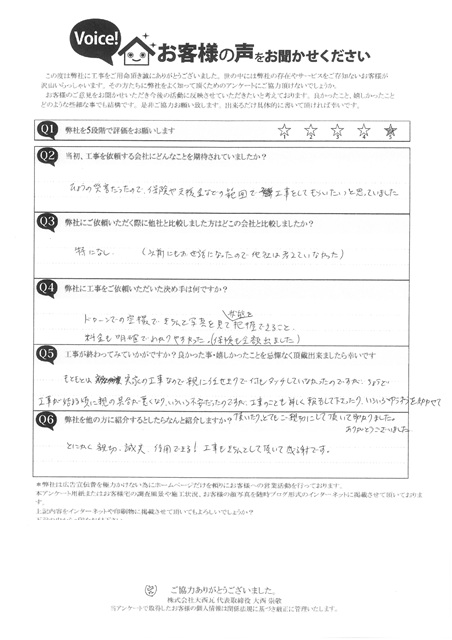 Voice!
お客様の声をお聞かせください
この度は弊社に工事をご用命頂き誠にありがとうございました。世の中には弊社の存在やサービスをご存知ないお客様が
沢山いらっしゃいます。その方たちに弊社をよく知って頂くためのアンケートにご協力頂けないでしょうか。
お客様のご意見をお聞かせいただき今後の活動に反映させていただきたいと考えております。良かったこと、嬉しかったこと
どのような些細な事でも結構です。是非ご協力お願い致します。出来るだけ具体的に書いて頂ければ幸いです。
Q1 弊社を5段階で評価をお願いします
Q2 当初、工事を依頼する会社にどんなことを期待されていましたか？
災害だったので、保険や支援金などの範囲で 工事をしてもらいたいと思っていました
Q3 弊社にご依頼いただく際に他社と比較しました方はどこの会社と比較しましたか？
特になし （以前にもお世話になったので他社は考えていなかった）
Q4 弊社に工事をご依頼いただいた決め手は何ですか？
ドローンでの空撮で、きちんと写真を見て把握できること、
料金も明確でわかりやすかった（保険も全額出ました）
Q5 工事が終わってみていかがですか？良かった事・嬉しかったことを忌憚なく頂戴出来ましたら幸いです
もともとは 実家の工事なので親に任せきりで何もタッチしていなかったのですが、ちょうど
工事が始まる頃に親の具合が悪くなり、いろいろ不安だったのですが、工事のことも詳しく報告して下さったり、いろいろ
頂いたり、とてもご親切にして頂いて助かりました。
ありがとうございました
Q6 弊社を他の方に紹介するとしたらなんと紹介しますか？
とにかく親切、誠実、信用できる！ 工事もきちんとして頂いて感謝です。
＊弊社は広告宣伝費を極力かけない為にホームページだけを頼りにお客様への営業活動を行っております。
本アンケート用紙またはお客様宅の調査風景や施工状況、お客様の顔写真を随時ブログ形式のインターネットに掲載させて頂いておりま
す。
上記内容をインターネットや印刷物に掲載させて頂いてもよろしいでしょうか？
ご協力ありがとうございました。
株式会社大西瓦 代表取締役 大西 崇敬
当アンケートで取得したお客様の個人情報は関係法規に基づき厳正に管理いたします。